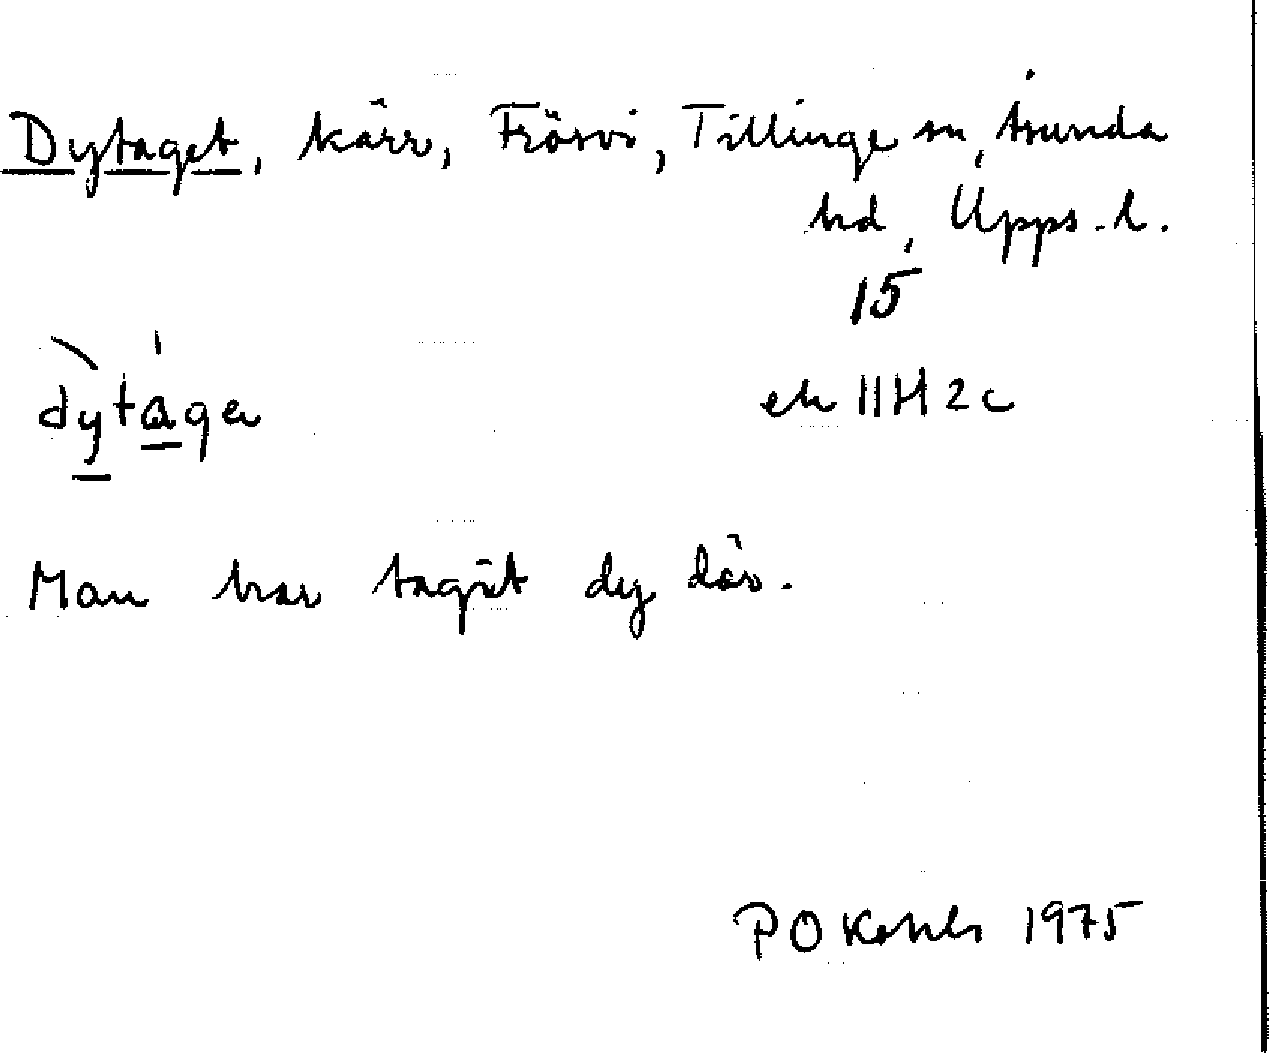 Dytaget, kärr, Frösvi, Tillinge sn, Åsunda
hd, Upps. l.
15
dỳtága
ek 11H 2c
Man har tagit dy där.
P O 1975